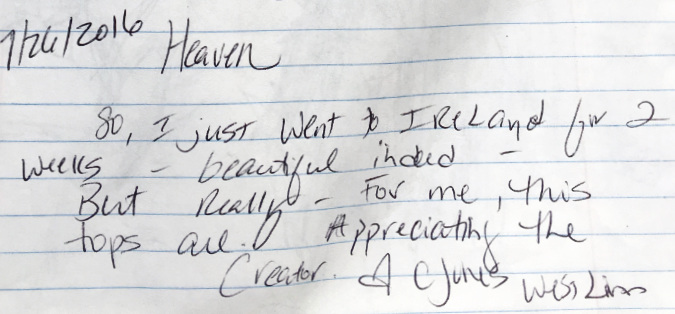 7/26/2016 Heaven
So, I just went to IReLand for 2
weeks - beautiful indeed -
But Really - For me, this
tops all. Appreciating the
Creator. West Linn